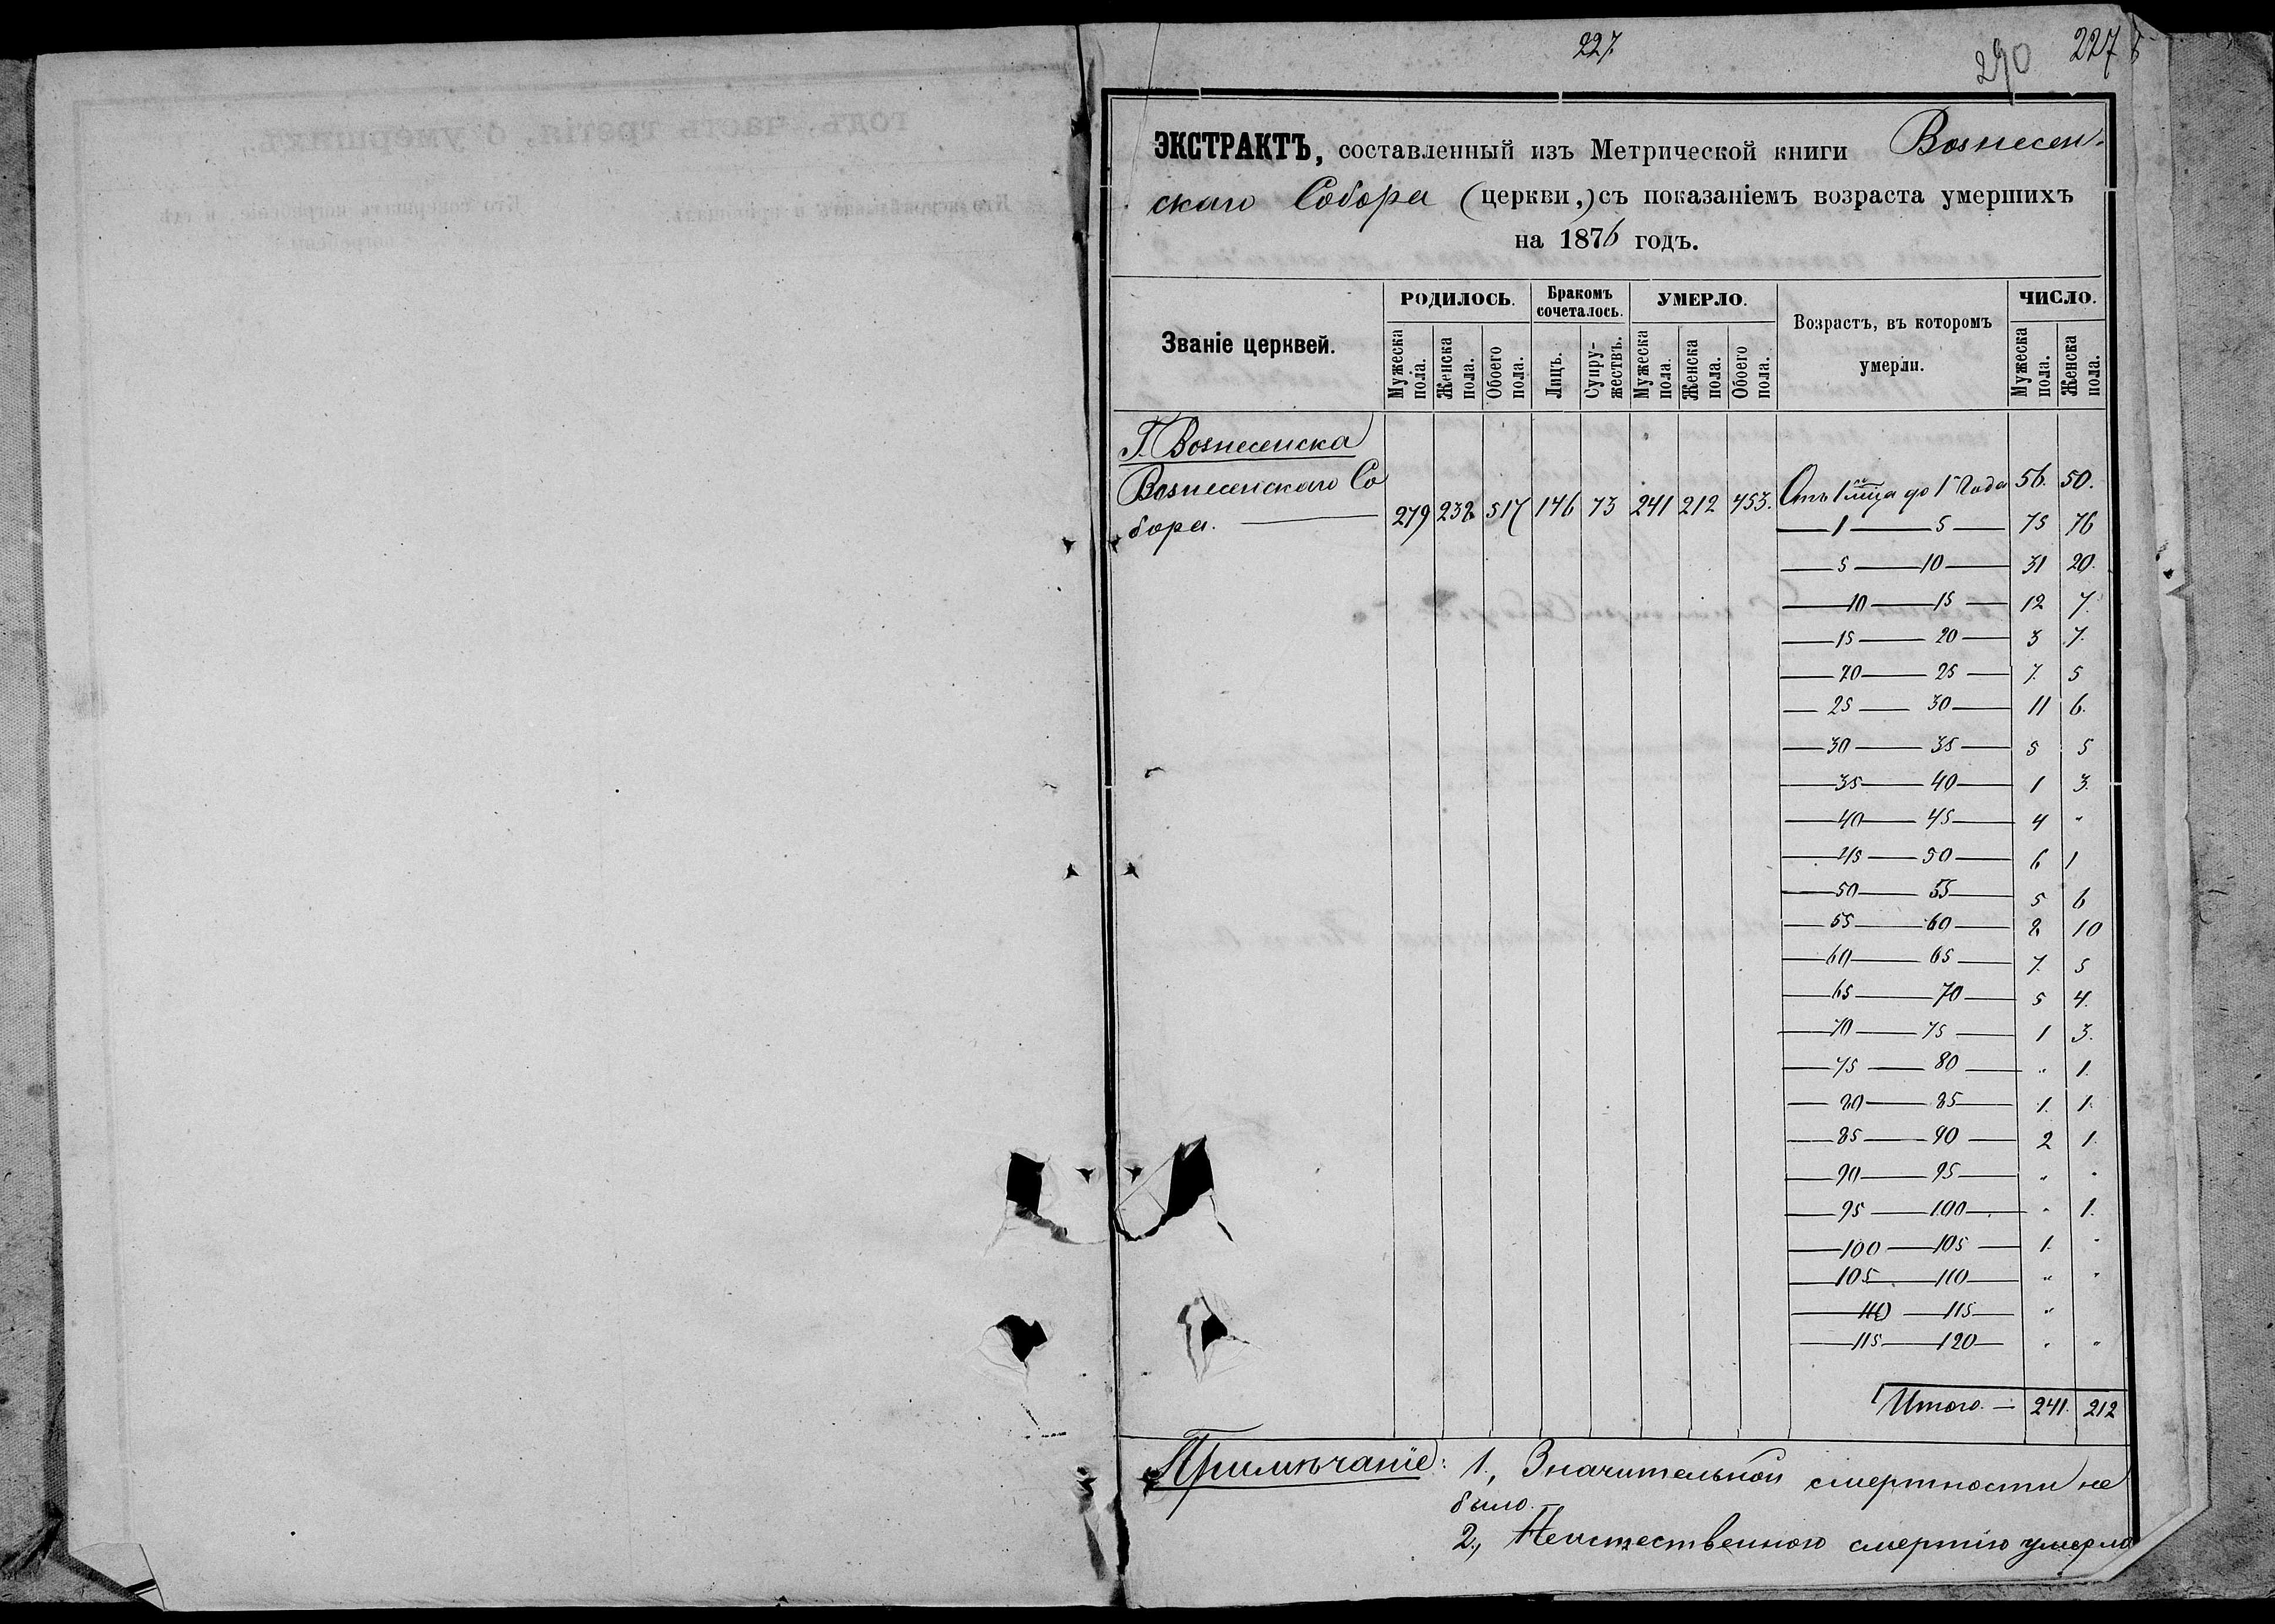 227.
290 227 б
ЭКСТРАКТЪ, составленный изъ Метрической книги Вознесен-
скаго Собора (церкви,) съ показаніемъ возраста умершихъ
на 1876 годъ.
Званіе церквей. РОДИЛОСЬ. Бракомъ сочеталось. УМЕРЛО. Возрастъ, въ которомъ умерли. ЧИСЛО.
Мужеска пола. Женска пола. Обоего пола. Лицъ. Супружествъ. Мужеска пола. Женска пола. Обоего пола. Мужеска пола. Женска пола.
Г. Вознесенска
Вознесенскаго Со
бора. — 279 238 517 146 73 241 212 453.
Отъ 1го мца до 1го Года 56. 50.
— 1 — 5 — 75 76
— 5 — 10 — 31 20.
— 10 — 15 — 12 7.
— 15 — 20 — 3 7.
— 20 — 25 — 7. 5
— 25 — 30 — 11 6.
— 30 — 35 — 5 5
— 35 — 40 — 1 3.
— 40 — 45 — 4 "
— 45 — 50 — 6 1
— 50 — 55 — 5 6
— 55 — 60 — 8 10
— 60 — 65 — 7. 5
— 65 — 70 — 5 4.
— 70 — 75 — 1 3.
— 75 — 80 — " 1.
— 80 — 85 — 1. 1.
— 85 — 90 — 2 1.
— 90 — 95 — " "
— 95 — 100 — " 1.
— 100 — 105 — 1. "
— 105 — 110 — " "
— 110 — 115 — "
— 115 — 120 — " "
Итого. — 241. 212
Примѣчаніе: 1., Значительной смертности не
было.
2., Неестественною смертію умерло